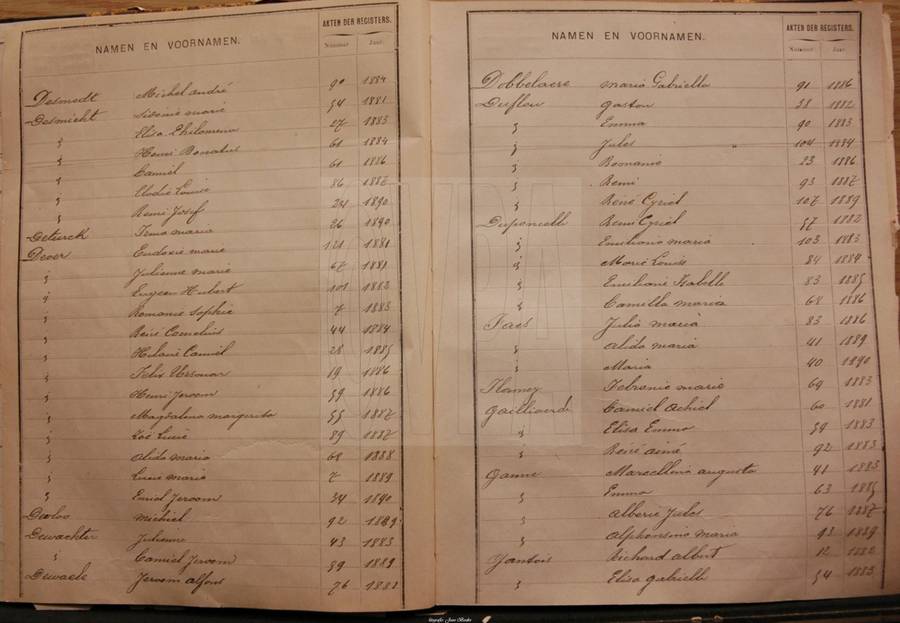 NAMEN EN VOORNAMEN. AKTEN DER REGISTERS.
Nummer Jaar.
Desmedt Michel André 90 1884
Desmicht Sidonie Marie 54 1881
" Elisa Philomena 27 1883
" Henri Donatus 61 1884
" Camiel 61 1886
" Elodie Louise 86 1887
" Remi Josef 24 1890
Deturck Irma Maria 26 1890
Dever Eudoxie Marie 121 1881
" Julienne Marie 67 1881
" Eugeen Hubert 101 1882
" Romanie Sophie 7 1883
" René Cornelius 44 1884
" Hilaire Camiel 28 1885
" Felix 19 1886
" Henri Jeroom 59 1886
" Magdalena Margarita 55 1887
" Zoé Lucie 89 1887
" Alida Maria 68 1888
" Lucie Maria 7 1889
" Emiel Jeroom 34 1890
Deeloo Michiel 92 1889
Dewachter Julienne 43 1883
" Camiel Jeroom 59 1889
Dewaele Jeroom Alfons 76 1882
NAMEN EN VOORNAMEN. AKTEN DER REGISTERS.
Nummer Jaar.
Dobbelaere Maria Gabrielle 91 1886
Dufleu Gaston 38 1882
" Emma 90 1883
" Jules 104 1884
" Romanie 23 1886
" Remi 93 1887
" René Cyriel 107 1889
Duponcelle Remi Cyriel 57 1882
" Emiliana Maria 103 1883
" Marie Louise 84 1884
" Emiliane Isabelle 83 1885
" Camella Maria 68 1886
Faes Julia Maria 83 1886
" Alida Maria 41 1889
" Maria 40 1890
Flamey Febronie Marie 69 1883
Gailliaerd Camiel Achiel 60 1881
" Elisa Emma 59 1883
" Réné Aimé 92 1883
Ganne Marcellina Augusta 41 1883
" Emma 63 1885
" Alberic Jules 76 1887
" Alphonsina Maria 93 1889
Gantois Richard Albert 12 1882
" Elisa Gabrielle 54 1883